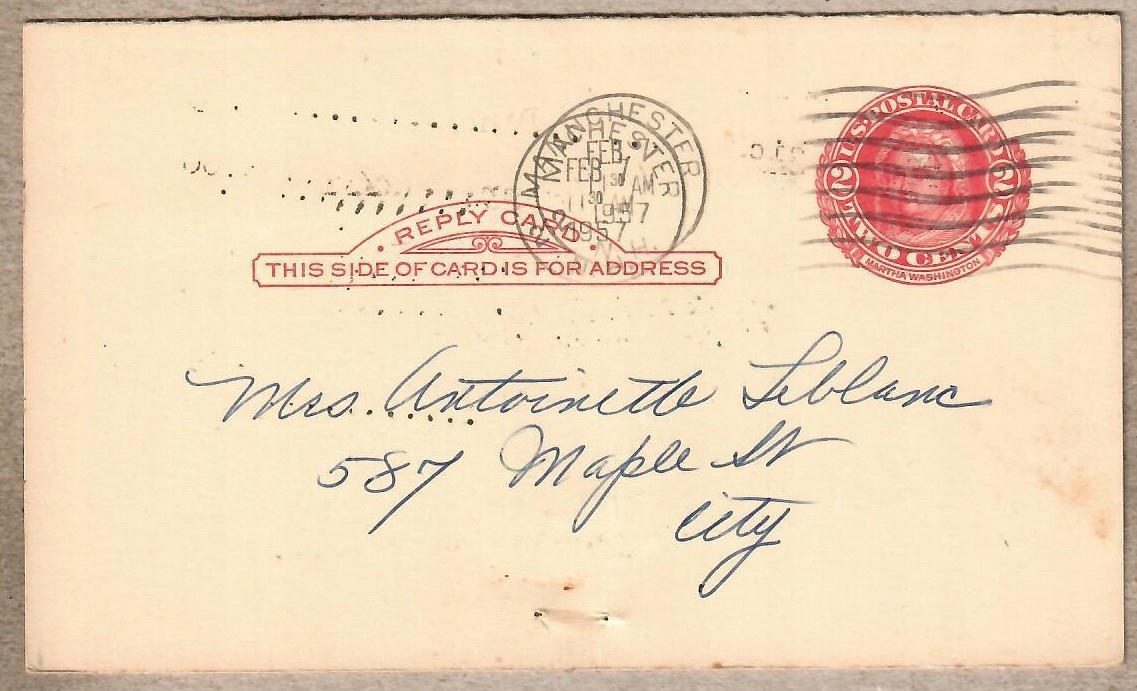 MANCHESTER
FEB 7
11 30 AM
1957
N.H.
U.S. POSTAL CARD
2 2
TWO CENTS
MARTHA WASHINGTON
REPLY CARD
THIS SIDE OF CARD IS FOR ADDRESS
Mrs. Antoinette Leblanc
587 Maple St
City